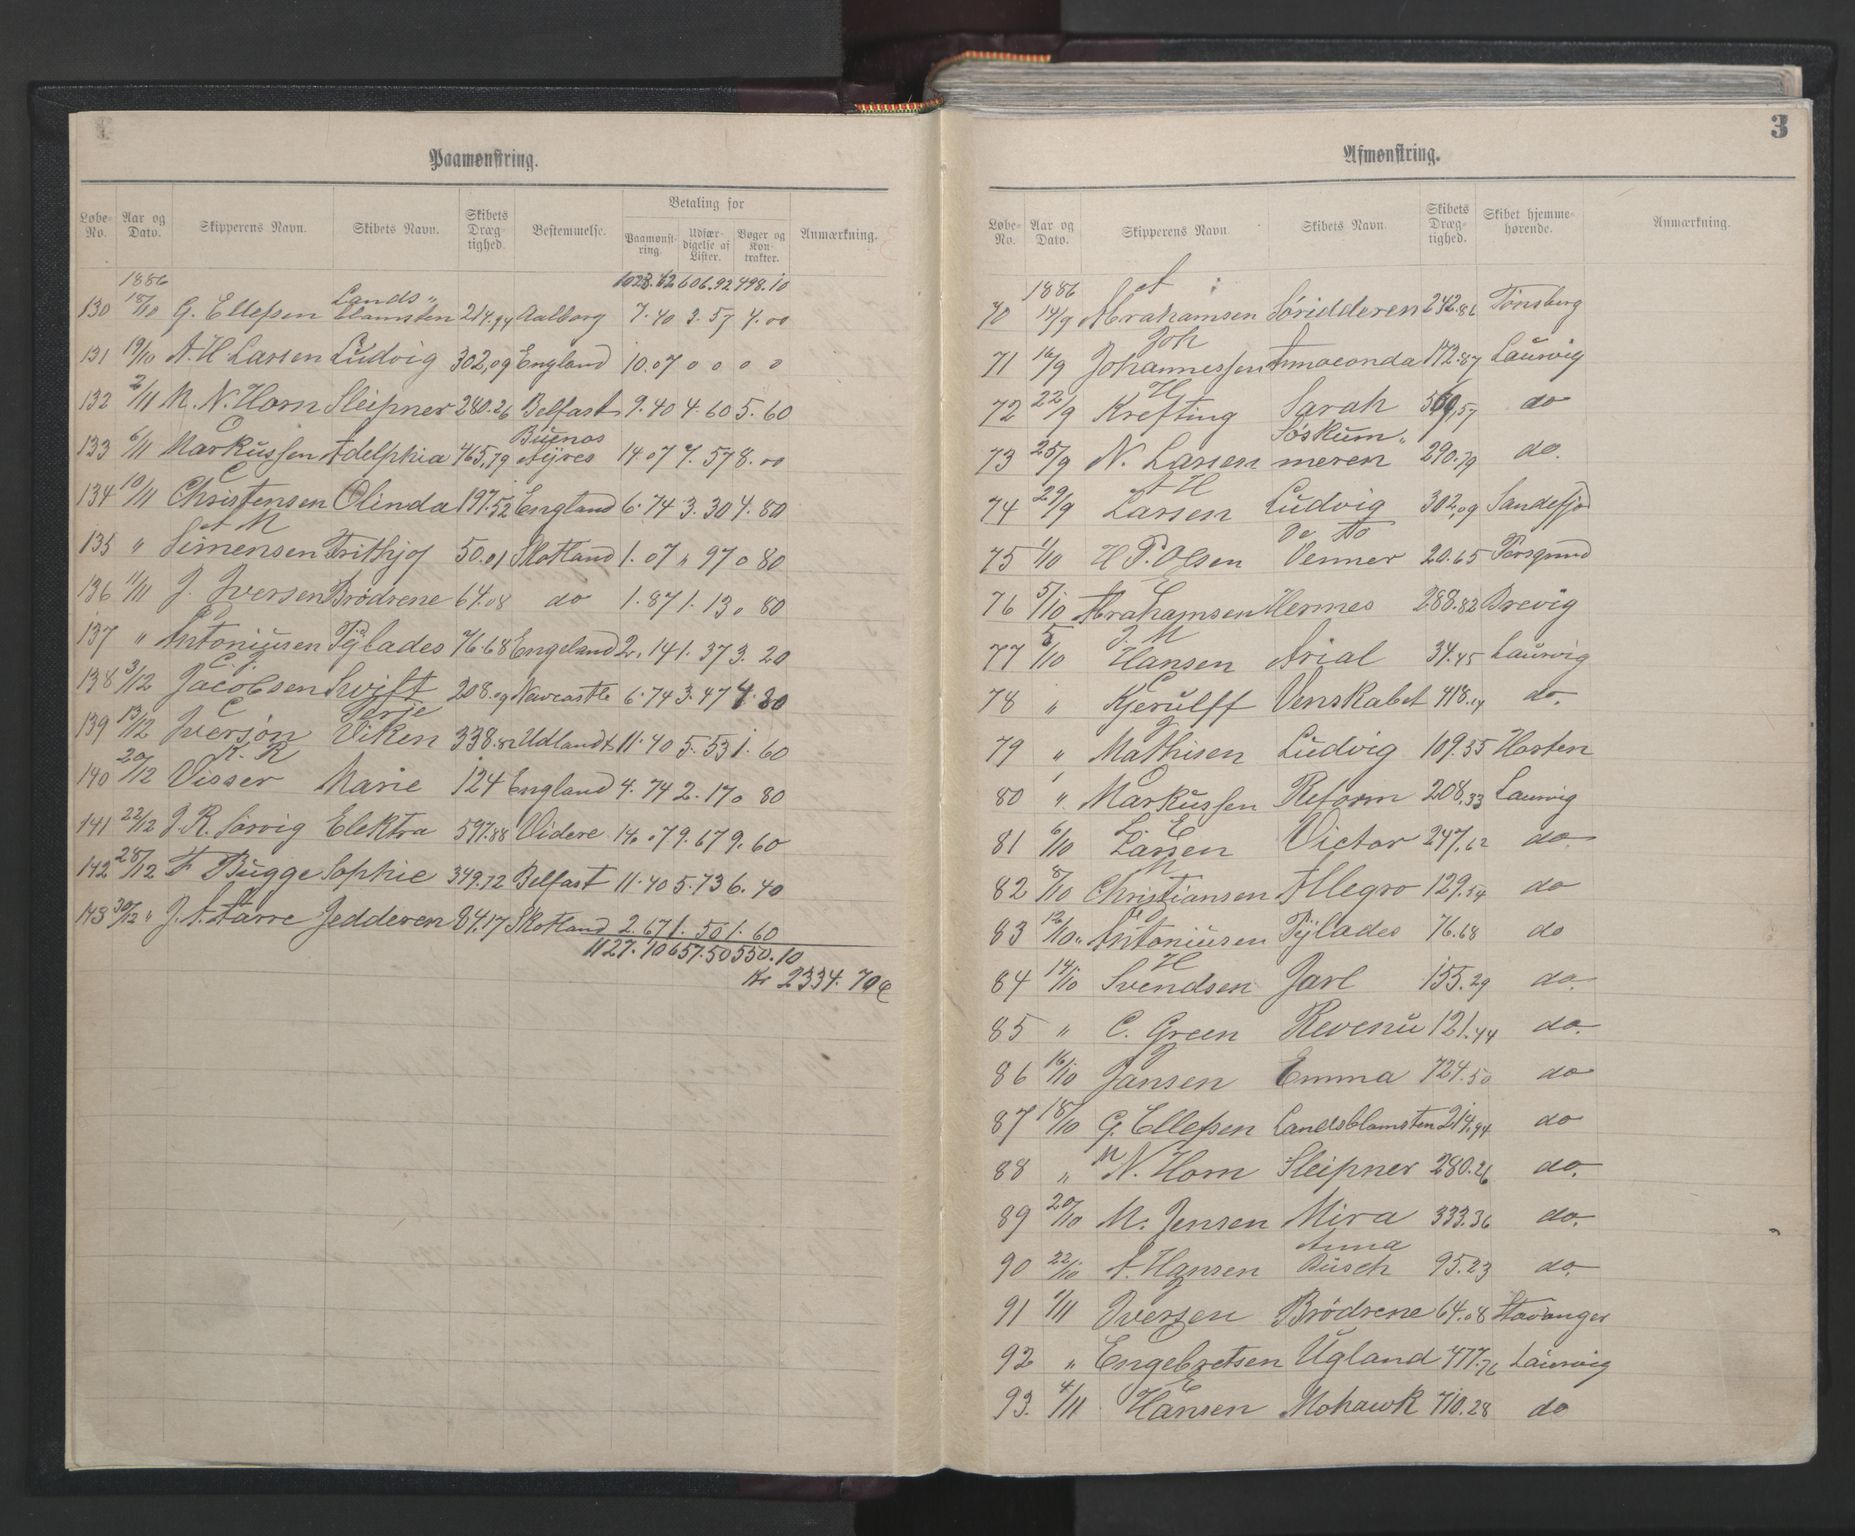 Paamønstring.
Løbe-No. Aar og Dato. Skipperens Navn. Skibets Navn. Skibets Dræg-tighed. Bestemmelse. Betaling for Paamønst-ring. Udfær-digelse af Lister. Bøger og Kon-trakter. Anmærkning.
1886 1028.62 606.92 498.10
130 18/10 G. Ellefsen Lands„ blomsten 214.94 Aalborg 7.40 3.57 4.00
131 19/10 A. H Larsen Ludvig 302,09 England 10.07 0 0 0 0
132 2/11 M. N. Horn Sleipner 280.26 Belfast 9.40 4.60 5.60
133 6/11 Markussen Adelphia 465,79 Buenos Ayres 14.07 7.57 8.00
134 10/11 C Christensen Olinda 197.52 England 6.74 3.30 4.80
135 „ A M Simensen Frithjof 50.01 Skotland 1.07 „ 97 0 80
136 11/11 J. Iversen Brødrene 64.08 do 1.87 1.13 0 80
137 „ O Antoniusen Pylades 76.68 Engeland 2.14 1.37 3.20
138 3/12 C. J. Jacobsen Swift 208.09 Newcastle 6.74 3.47 4.80
139 13/12 C Iversøn Terje Viken 338.82 Udlandt 11.40 5.53 1.60
140 20/12 K. R Visser Marie 124 England 4.74 2.17 0 80
141 22/12 J. R. Sørvig Elektra 597.88 Videre 14.07 9.67 9.60
142 28/12 F Bugge Sophie 349.72 Belfast 11.40 5.73 6.40
143 30/12 „ J. A. Aarre Jedderen 84.17 Skotland 2.67 1.50 1.60
1127.10 657.50 550.10
Kr 2334.70
3
Afmønstring.
Løbe-No. Aar og Dato. Skipperens Navn. Skibets Navn. Skibets Dræg-tighed. Skibet hjemme-hørende. Anmærkning.
1886
70 14/9 A Abrahamsen Søridderen 242.86 Tønsberg
71 16/9 Joh Johannessen Annaconda 172.87 Laurvig
72 22/9 H Krefting Sarah 569,57 do
73 25/9 N. Larsen Søskum„ meren 290.79 do.
74 29/9 A H Larsen Ludvig 302,09 Sandefjo
75 1/10 H P. Olsen De to Venner 20.65 Porsgrund
76 5/10 Abrahamsen Hermes 288.82 Brevig
77 5/10 J. M Hansen Arial 34.45 Laurvig
78 „ Kjerulff Venskabet 418.04 do.
79 „ J Mathisen Ludvig 109.55 Horten
80 „ Markussen Reform 208,33 Laurvig
81 6/10 L. E Larsen Victor 247,62 do.
82 8/10 M Christiansen Allegro 129.54 do
83 12/10 „ O Antoniusen Pylades 76.68 do
84 14/10 H Svendsen Jarl 155.29 do.
85 „ C. Green Revenu 121.44 do.
86 16/10 J Jansen Emma 724.50 do
87 18/10 G. Ellefsen Landsblomsten 214,94 do
88 „ M N. Horn Sleipner 280.26 do.
89 20/10 M. Jensen Mira 333.36 do.
90 22/10 A. Hansen Anna Busch 95.23 do.
91 1/11 J Iversen Brødrene 64.08 Stavanger
92 „ Engebretsen Ugland 477.76 Laurvig
93. 4/11 E Hansen Mohawk 710.28 do